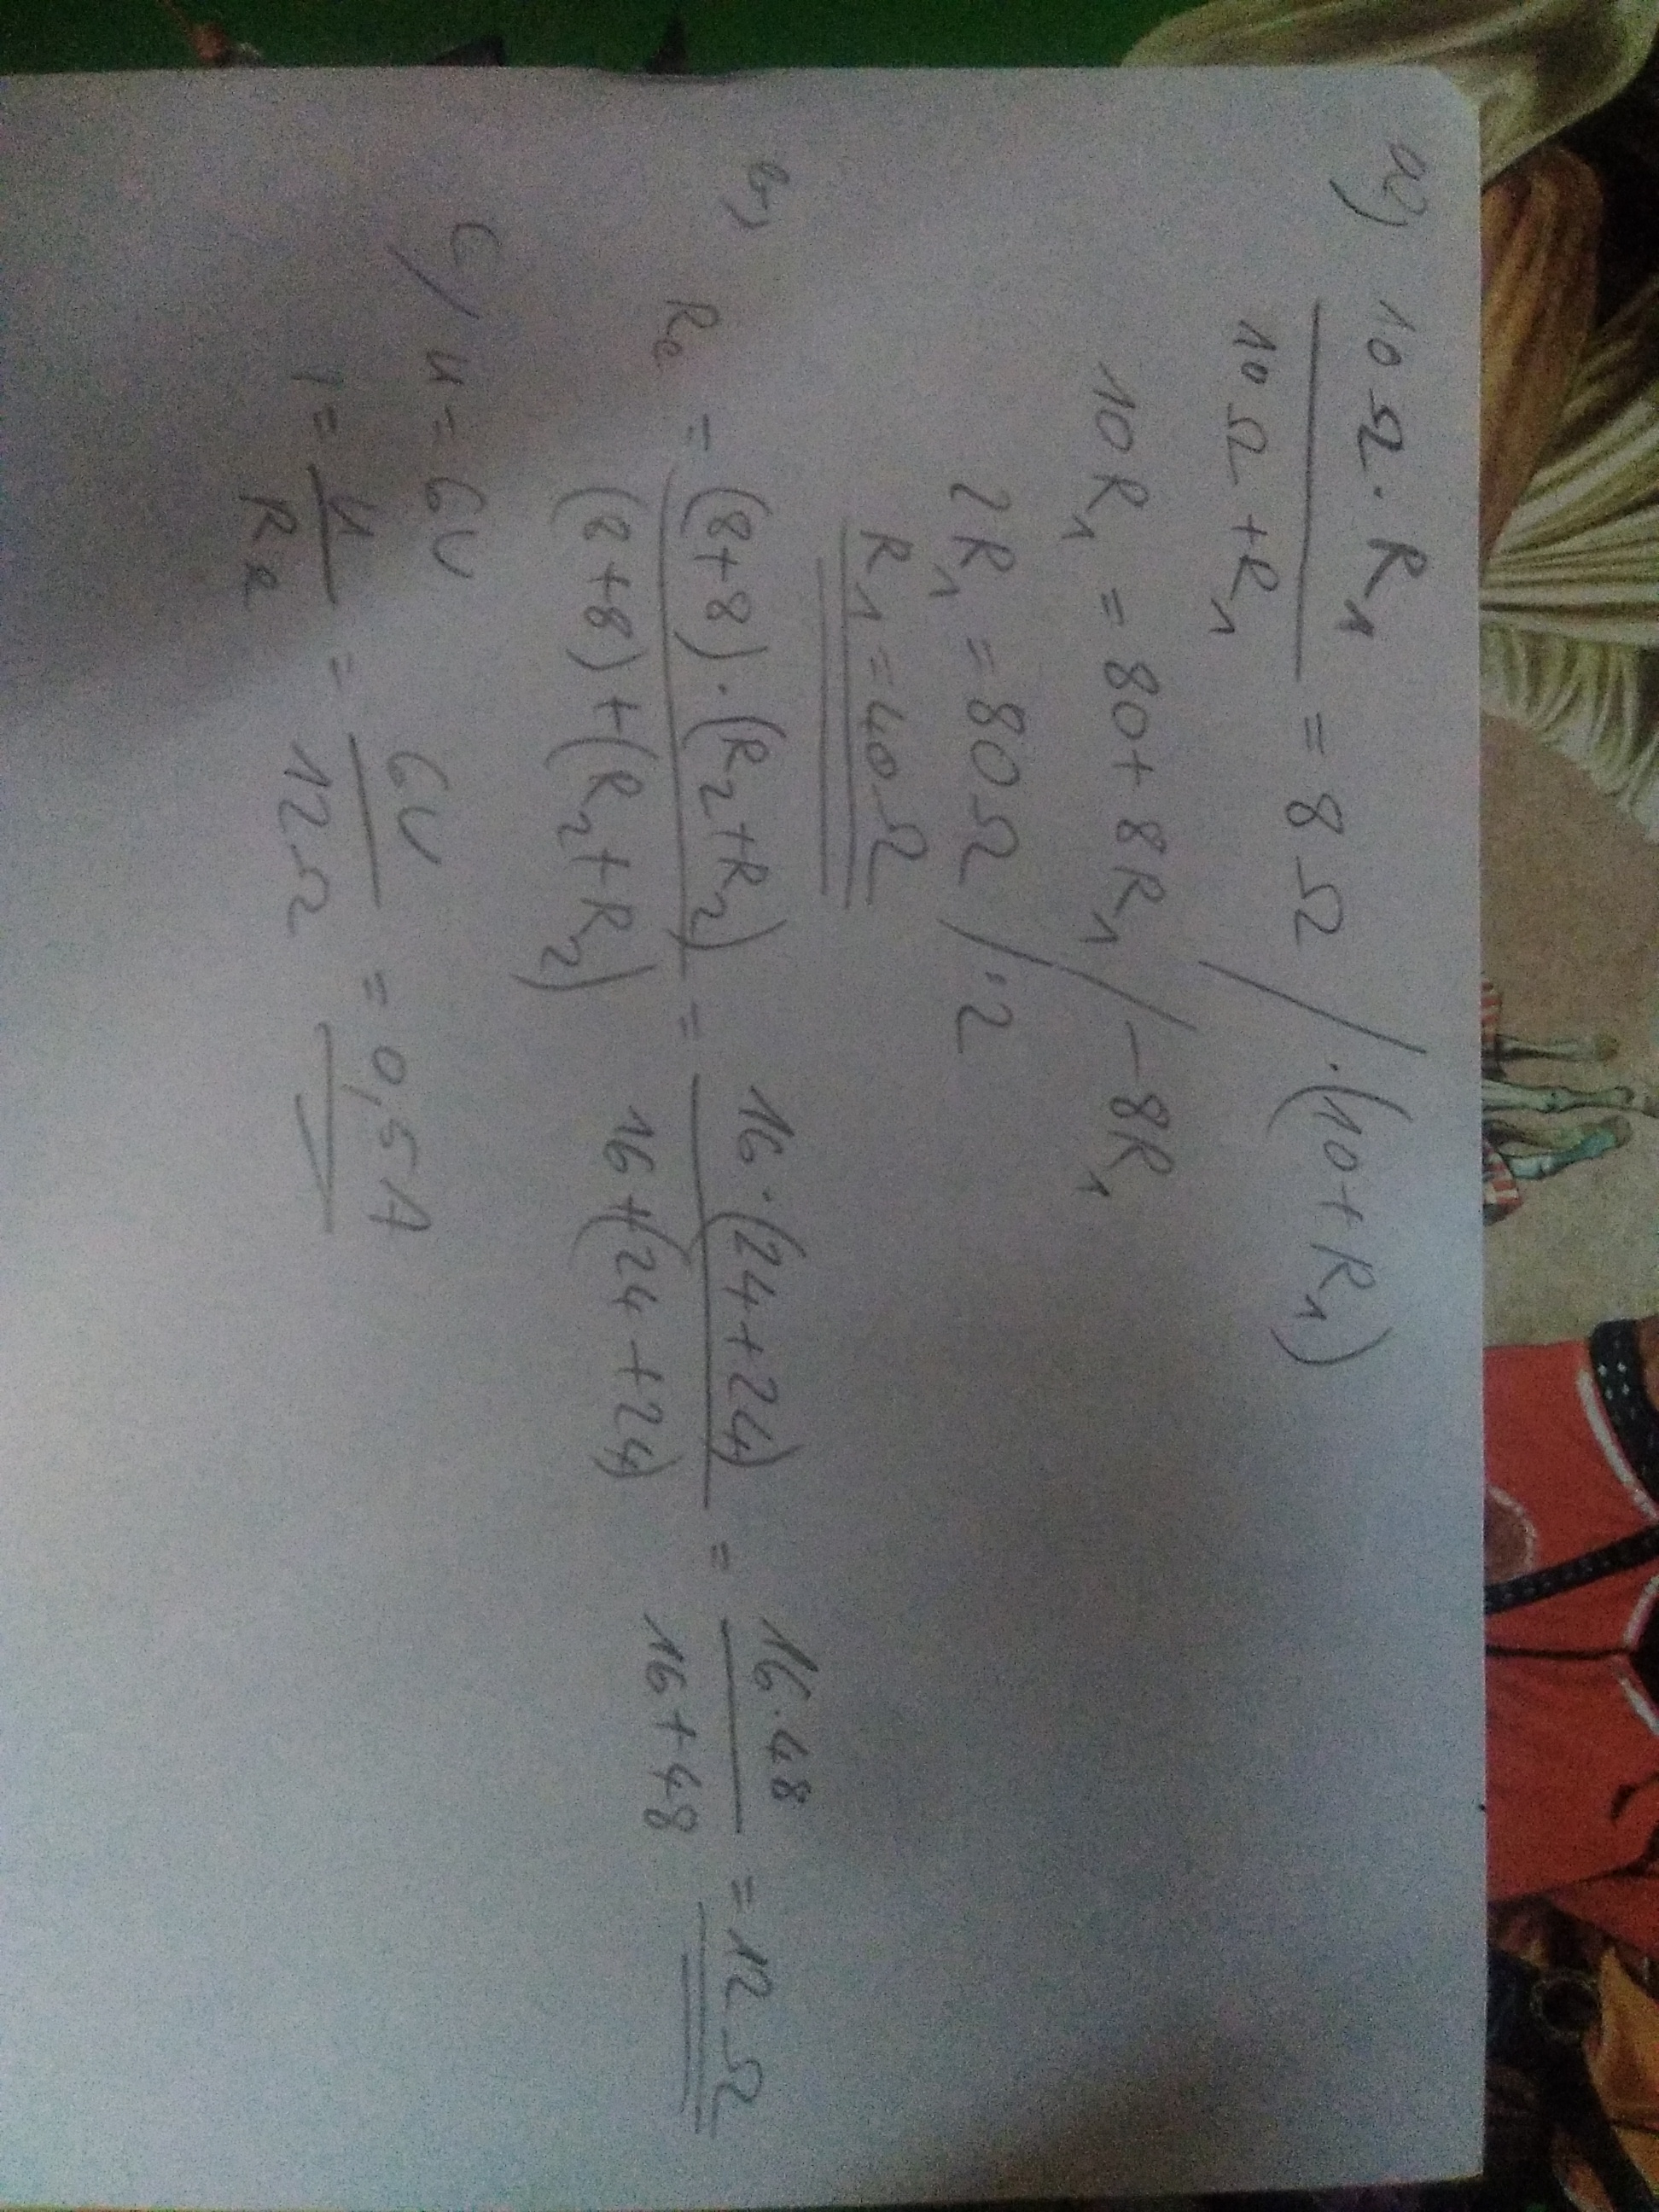 a) 10Ω · R₁ / 10Ω + R₁ = 8Ω / ·(10 + R₁)
10R₁ = 80 + 8R₁ / -8R₁
2R₁ = 80Ω / :2
R₁ = 40Ω
b) Re = (8+8) · (R₂+R₂) / (8+8) + (R₂+R₂) = 16 · (24+24) / 16 + (24+24) = 16 · 48 / 16 + 48 = 12Ω
c) U = 6V
I = U / Re = 6V / 12Ω = 0,5A